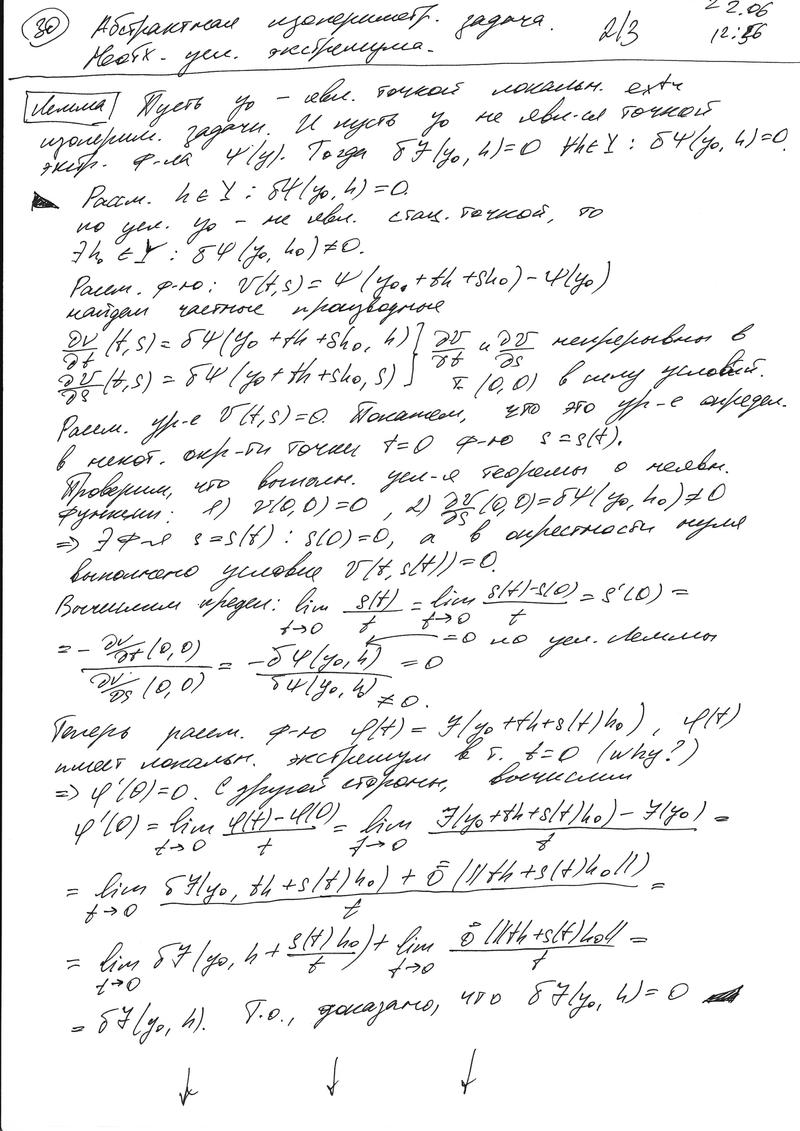 30 Абстрактная изопериметр. задача. 2/3 22.06
Необх. усл. экстремума. 12:56
Лемма Пусть y₀ – явл. точкой локальн. extr
изоперим. задачи. И пусть y₀ не явл-ся точкой
экстр. ф-ла Ψ(y). Тогда δJ(y₀, h)=0 ∀h∈Y : δΨ(y₀, h)=0.
Рассм. h∈Y : δΨ(y₀, h)=0.
по усл. y₀ – не явл. стац. точкой, то
∃h₀ ∈ Y : δΨ(y₀, h₀)≠0.
Рассм. ф-ю: v(t,s) = Ψ(y₀+th+sh₀) – Ψ(y₀)
найдем частные производные
∂v/∂t (t,s) = δΨ(y₀+th+sh₀, h) ] ∂v/∂t и ∂v/∂s непрерывны в
∂v/∂s (t,s) = δΨ(y₀+th+sh₀, s) ] т. (0,0) в силу условий.
Рассм. ур-е v(t,s)=0. Покажем, что это ур-е определ.
в некот. окр-ти точки t=0 ф-ю s=s(t).
Проверим, что выполн. усл-я теоремы о неявн.
функции: 1) v(0,0)=0 , 2) ∂v/∂s (0,0)=δΨ(y₀, h₀)≠0
⇒ ∃ ф-я s=s(t) : s(0)=0, а в окрестности нуля
выполнено условие v(t,s(t))=0.
Вычислим предел: lim t→0 s(t)/t = lim t→0 (s(t)-s(0))/t = s'(0) =
= – ∂v/∂t (0,0) / ∂v/∂s (0,0) = –δΨ(y₀, h) / δΨ(y₀, h) = 0 =0 по усл. Леммы
≠0.
Теперь рассм. ф-ю φ(t) = J(y₀+th+s(t)h₀) , φ(t)
имеет локальн. экстремум в т. t=0 (why?)
⇒ φ'(0)=0. С другой стороны, вычислим
φ'(0) = lim t→0 (φ(t)–φ(0))/t = lim t→0 (J(y₀+th+s(t)h₀) – J(y₀))/t =
= lim t→0 (δJ(y₀, th+s(t)h₀) + ō(||th+s(t)h₀||))/t =
= lim t→0 δJ(y₀, h + s(t)h₀/t) + lim t→0 ō(||th+s(t)h₀||)/t =
= δJ(y₀, h). Т.о., доказано, что δJ(y₀, h) = 0
↓ ↓ ↓